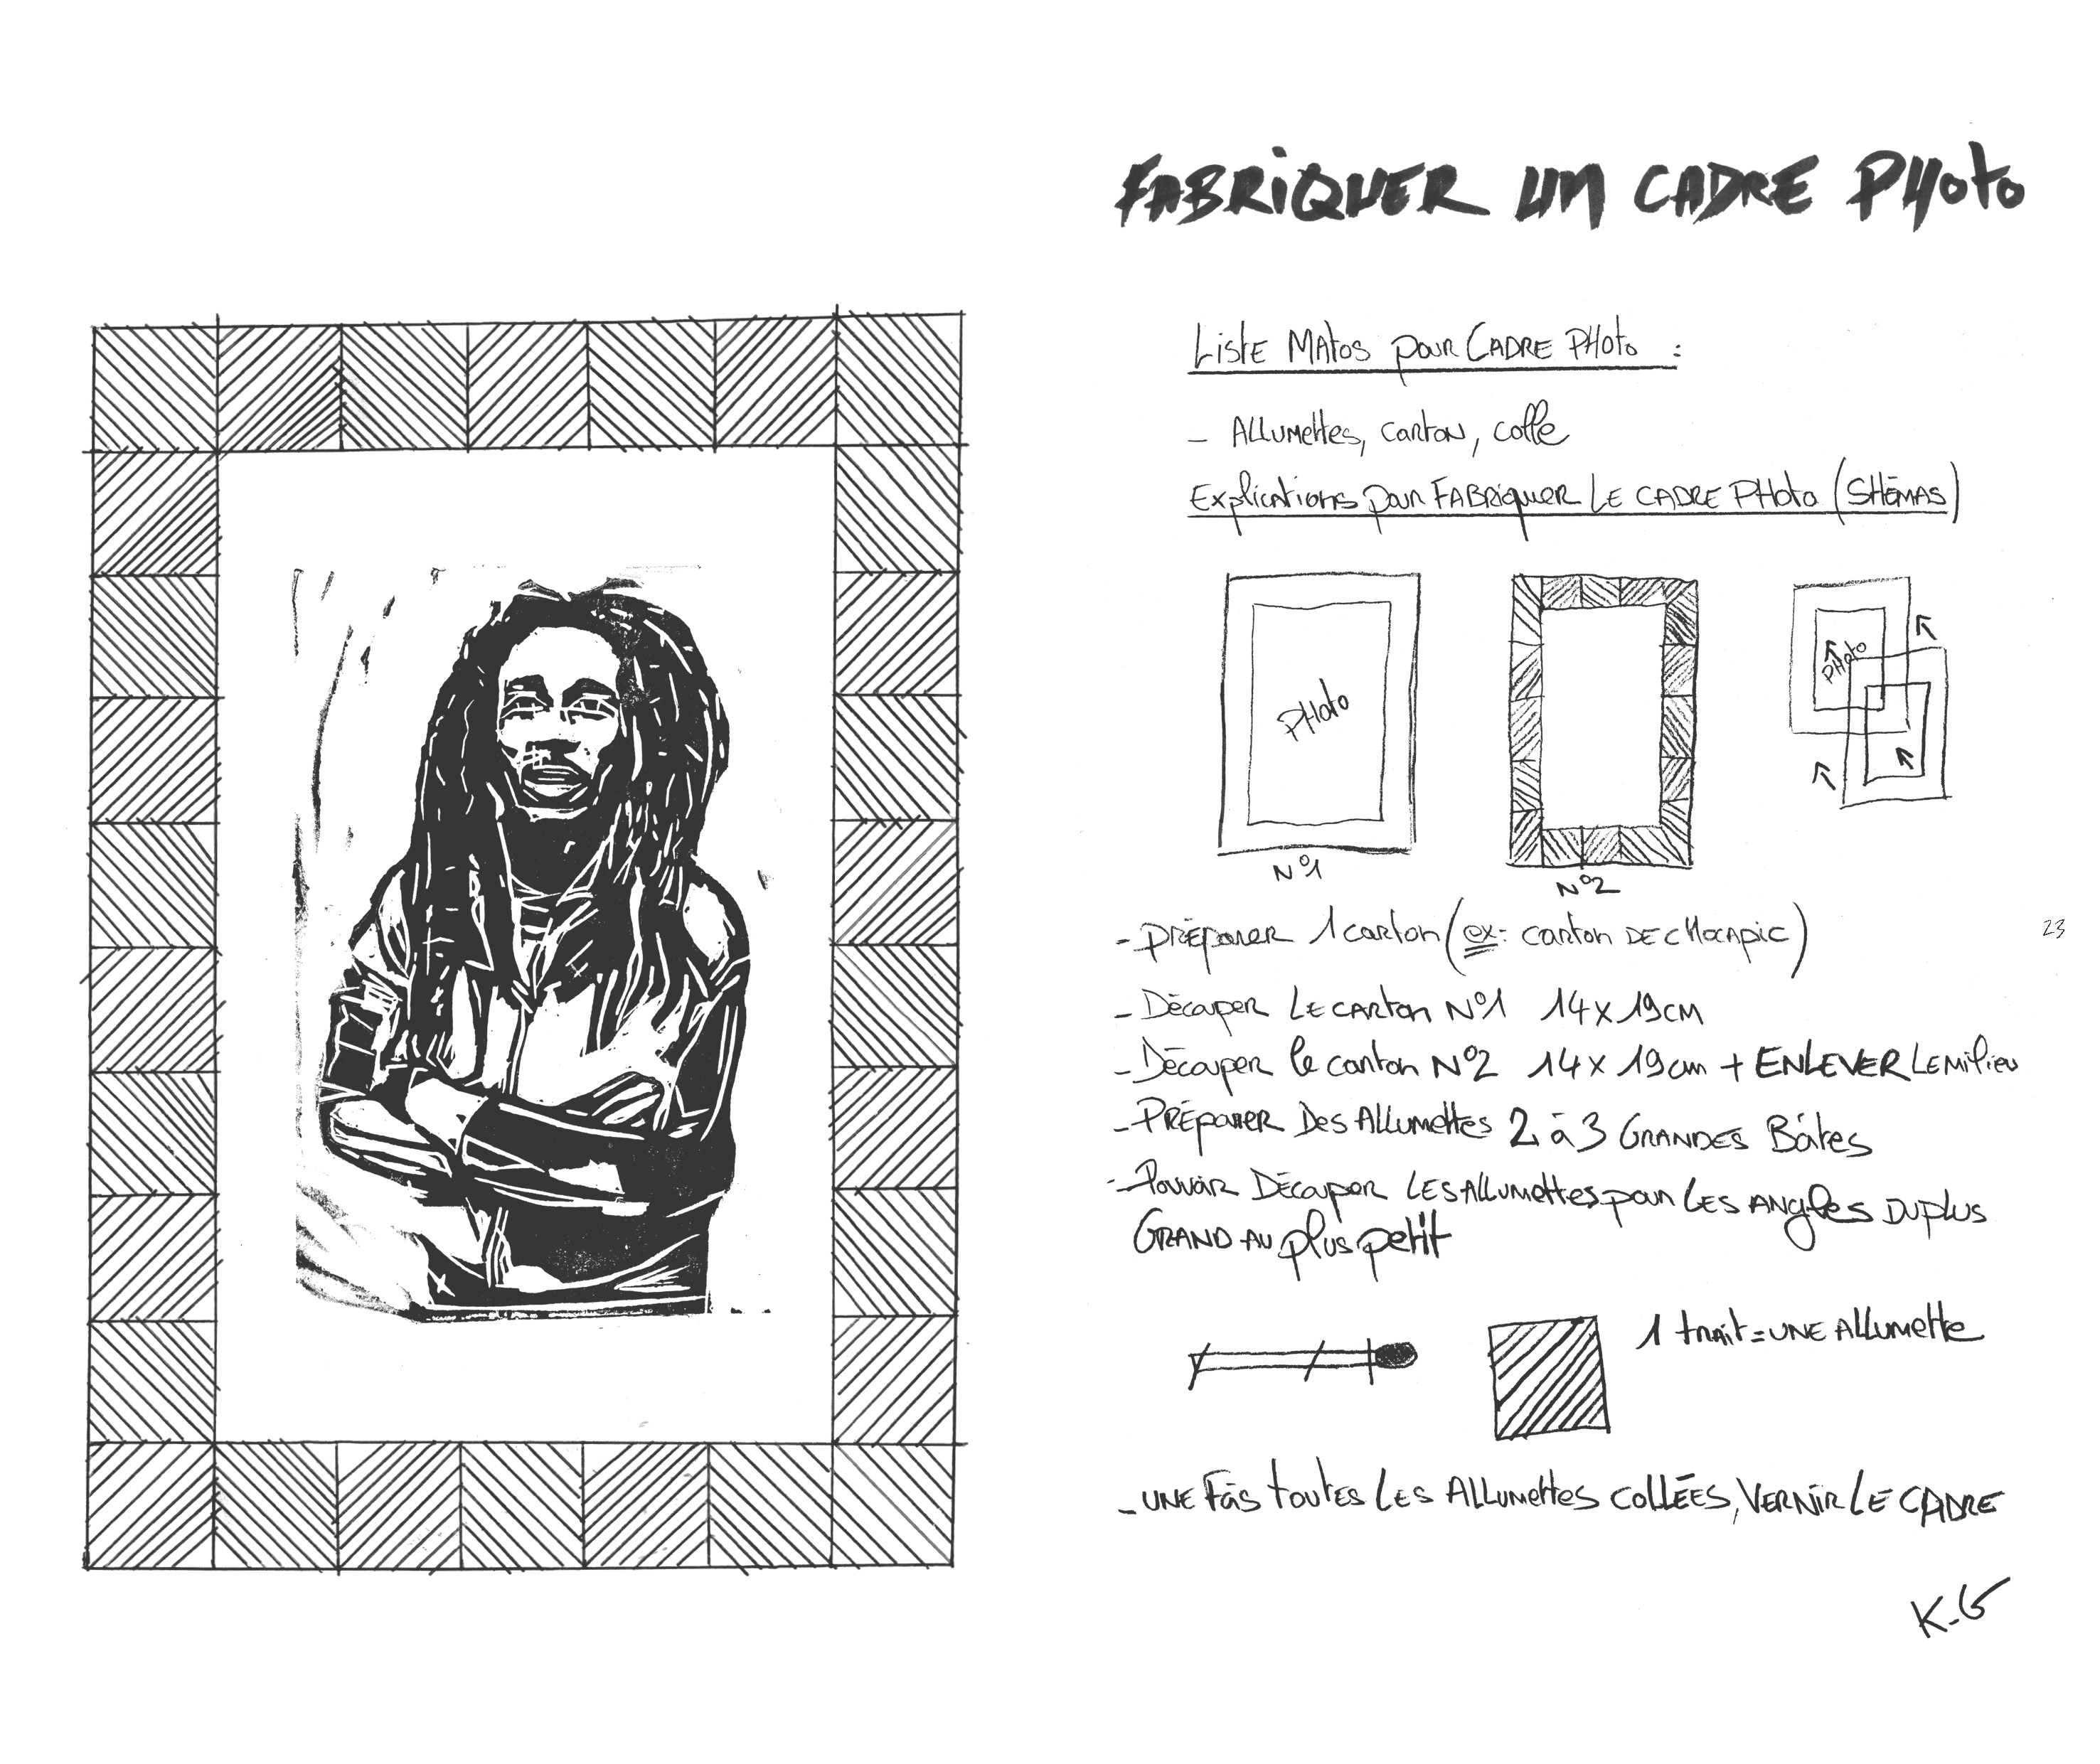 FABRIQUER UN CADRE PHOTO
Liste Matos pour Cadre Photo :
- Allumettes, carton, colle
Explications pour Fabriquer le cadre Photo (SHÉMAS)
PHOTO
PHOTO
N°1
N°2
- Préparer 1 carton (ex: carton de chocapic)
23
- Découper le carton N°1 14x19cm
- Découper le carton N°2 14x19cm + ENLEVER le milieu
- Préparer des Allumettes 2 à 3 GRANDES Bôites
- Pouvoir Découper les Allumettes pour les angles du plus
GRAND au plus petit
1 trait = UNE Allumette
- UNE Fois toutes les Allumettes collées, VERNIR le CADRE
K-G